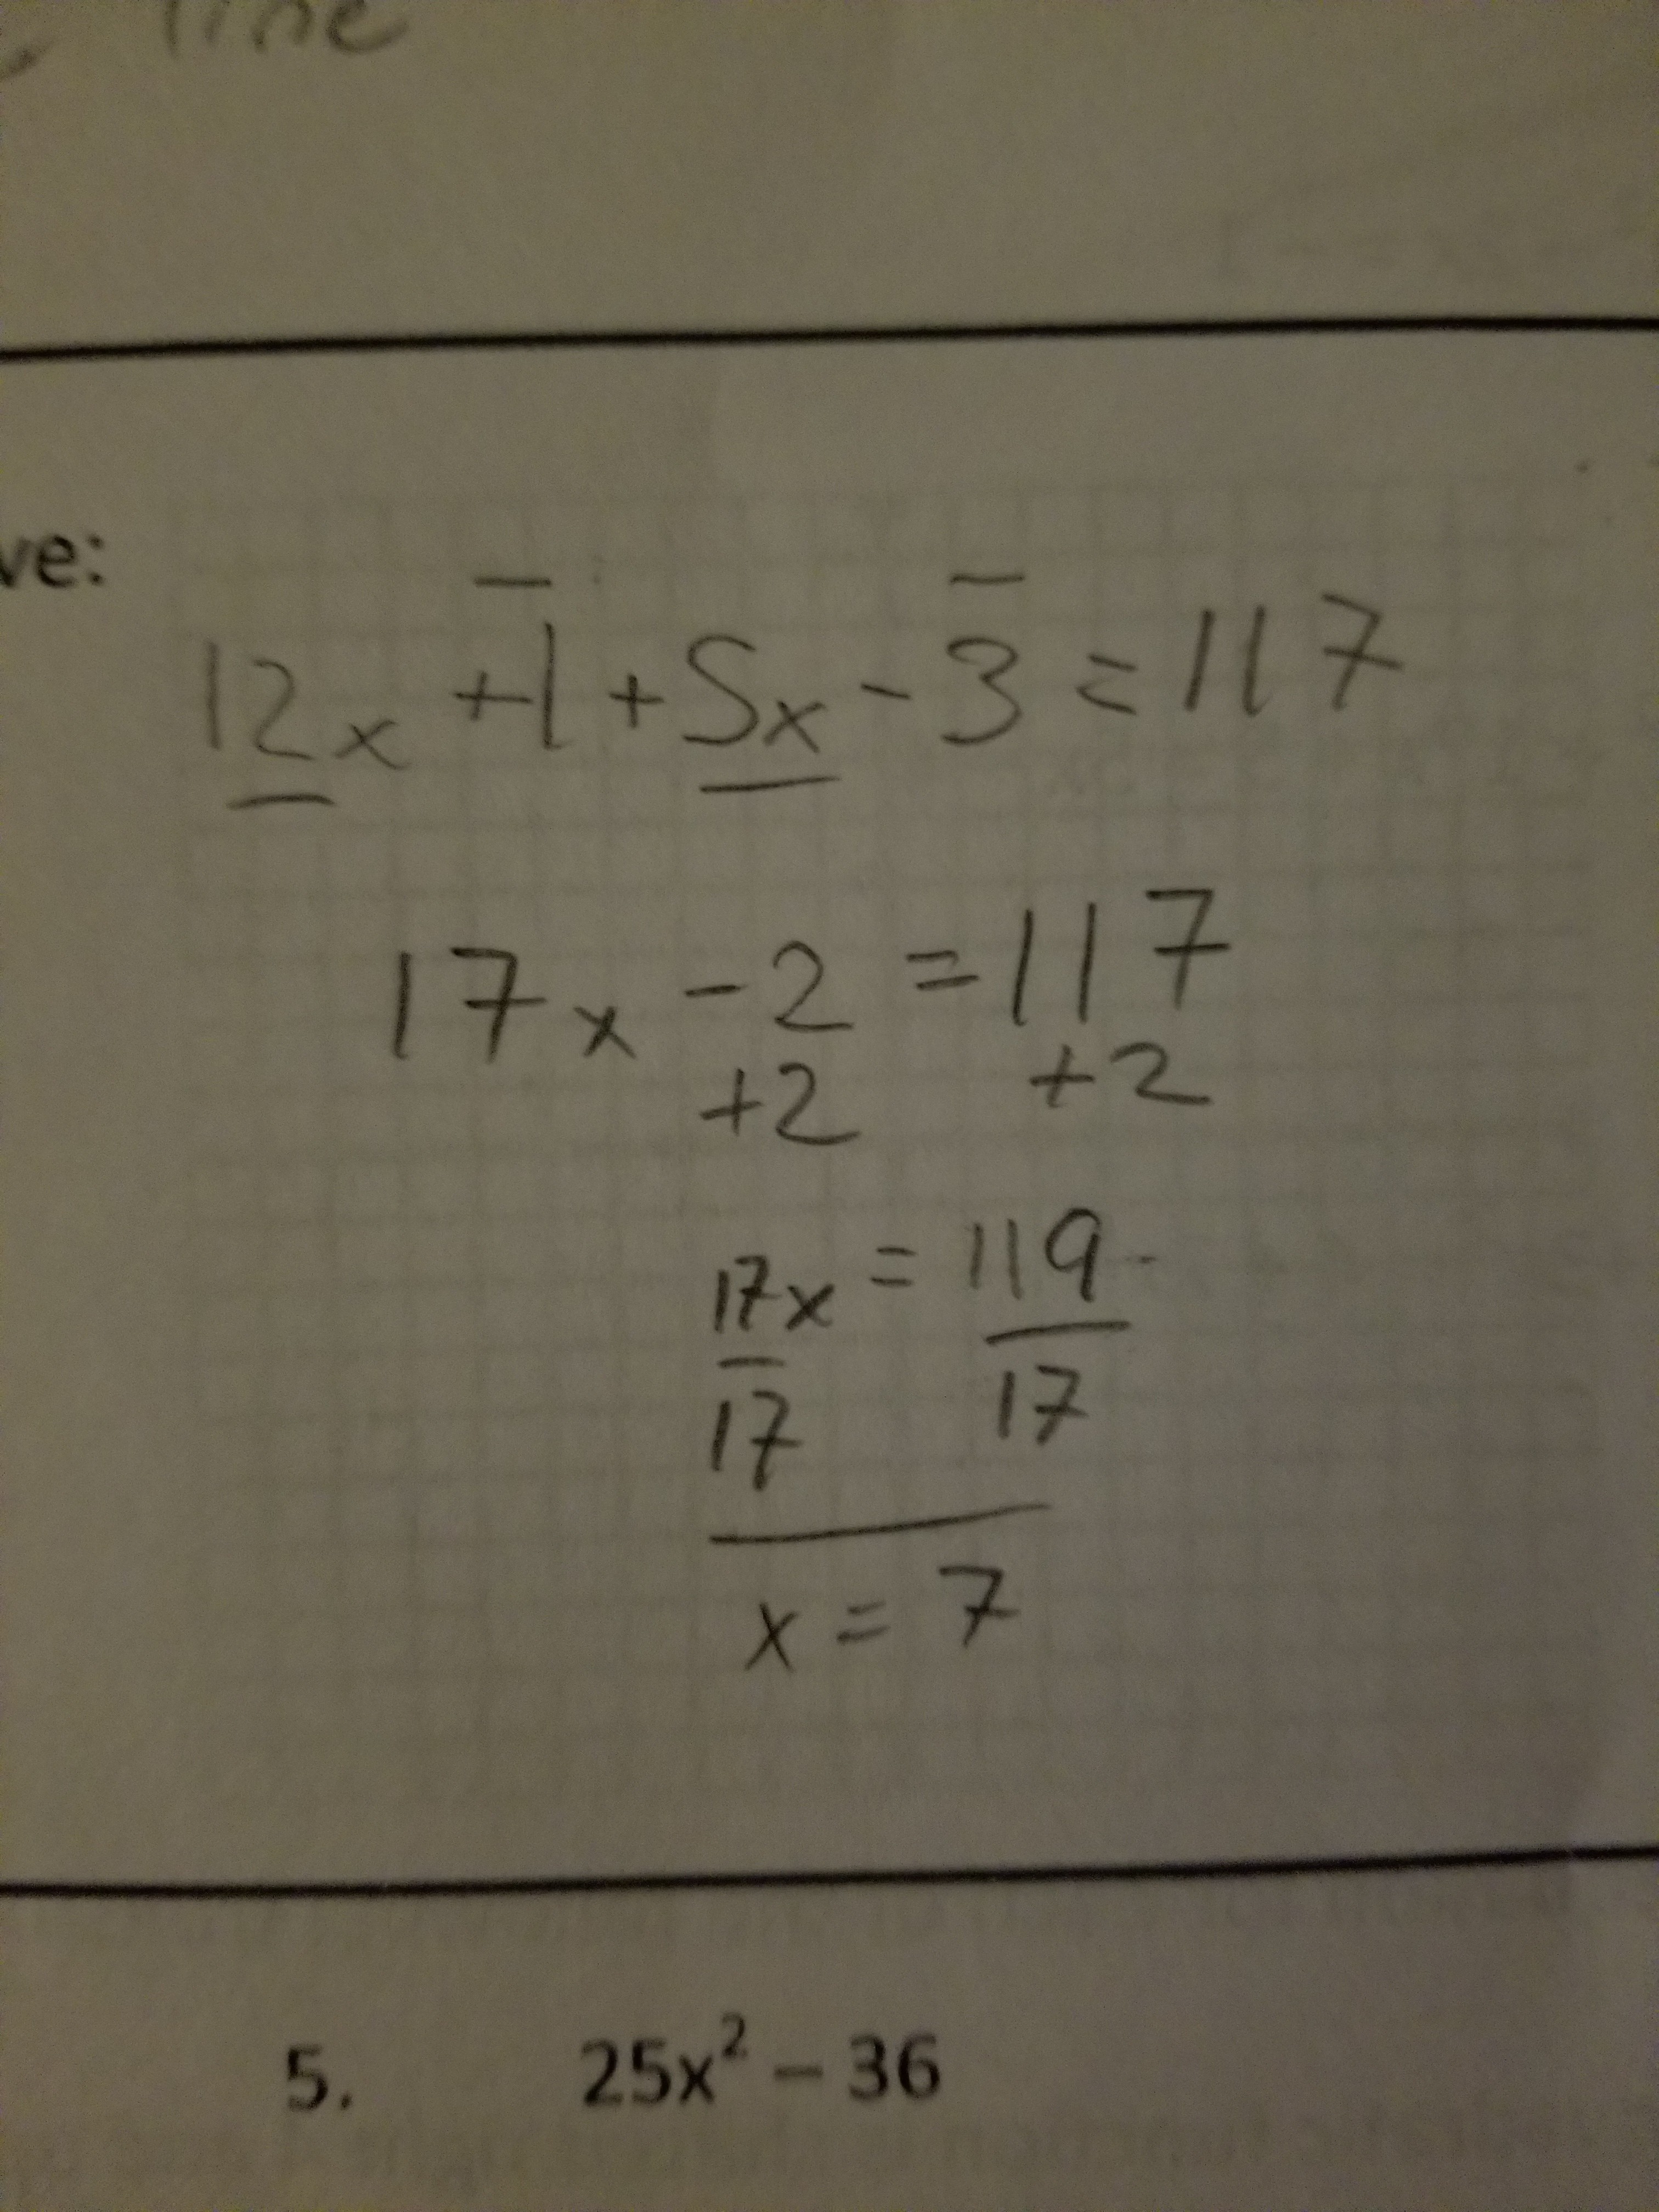 line
ve:
12x +1 + 5x - 3 = 117
17x - 2 = 117
+2 +2
17x = 119
17 17
x = 7
5. 25x² – 36